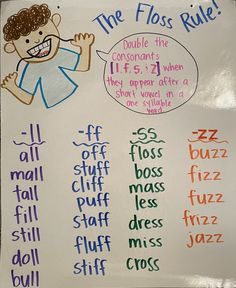 The Floss Rule!
Double the
Consonants
[l, f, s, z] when
they appear after a
short vowel in a
one syllable
word
-ll -ff -ss -zz
all off floss buzz
mall stuff boss fizz
tall cliff mass fuzz
fill puff less frizz
still staff dress jazz
doll fluff miss
bull stiff cross